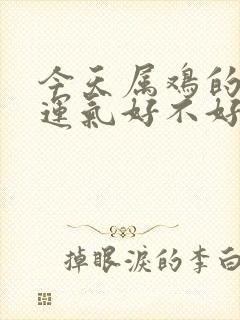 今天属鸡的
運氣好不好
掉眼淚的李白